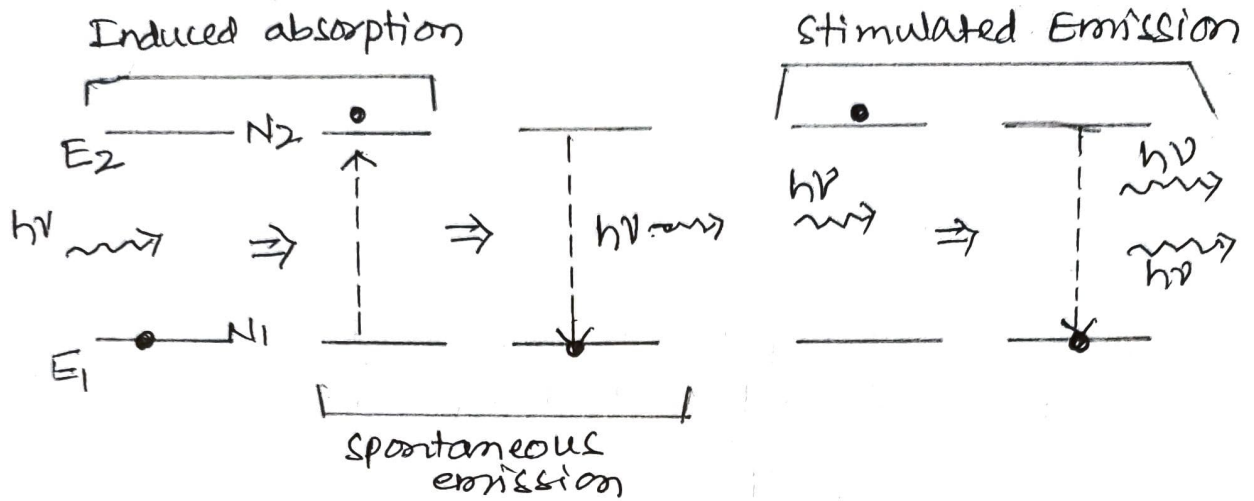 Induced absorption
Stimulated Emission
E2
N2
hν
hν
hν
hν
hν
E1
N1
spontaneous
emission